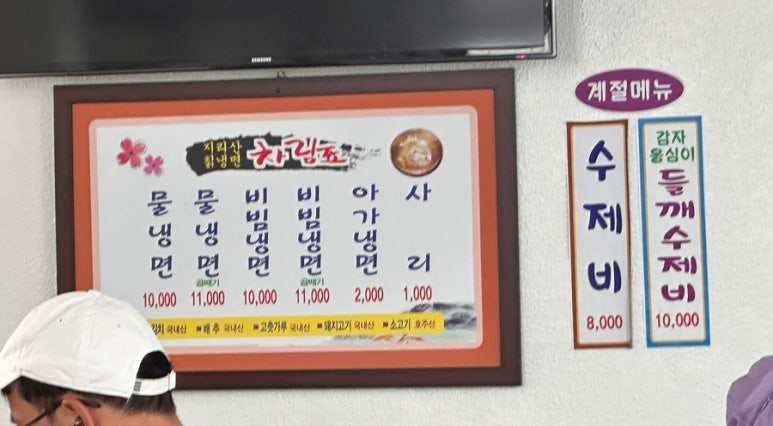 SAMSUNG
지리산
칡냉면
차림표
물냉면 10,000
물냉면 곱배기 11,000
비빔냉면 10,000
비빔냉면 곱배기 11,000
아가냉면 2,000
사리 1,000
김치 국내산 ■배추 국내산 ■고춧가루 국내산 ■돼지고기 국내산 ■소고기 호주산
계절메뉴
수제비
8,000
감자
옹심이
들깨수제비
10,000